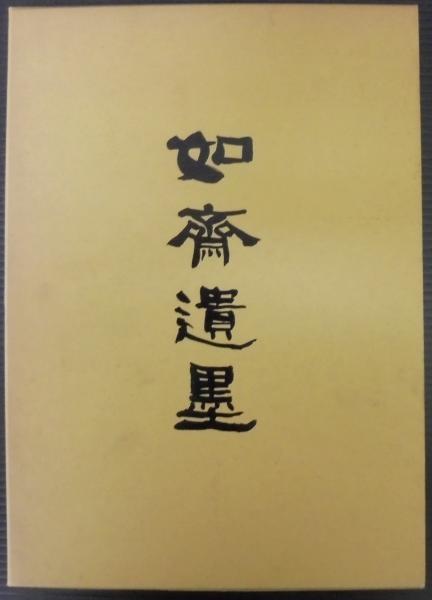 如齋遺墨